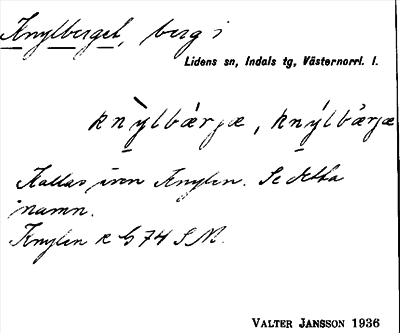 Knylberget, berg i
Lidens sn, Indals tg, Västernorrl. l.
knỳlbærjæ, knýlbærjæ
Kallas även Knylen. Se detta
namn.
Knylen k G 74 SM.
VALTER JANSSON 1936